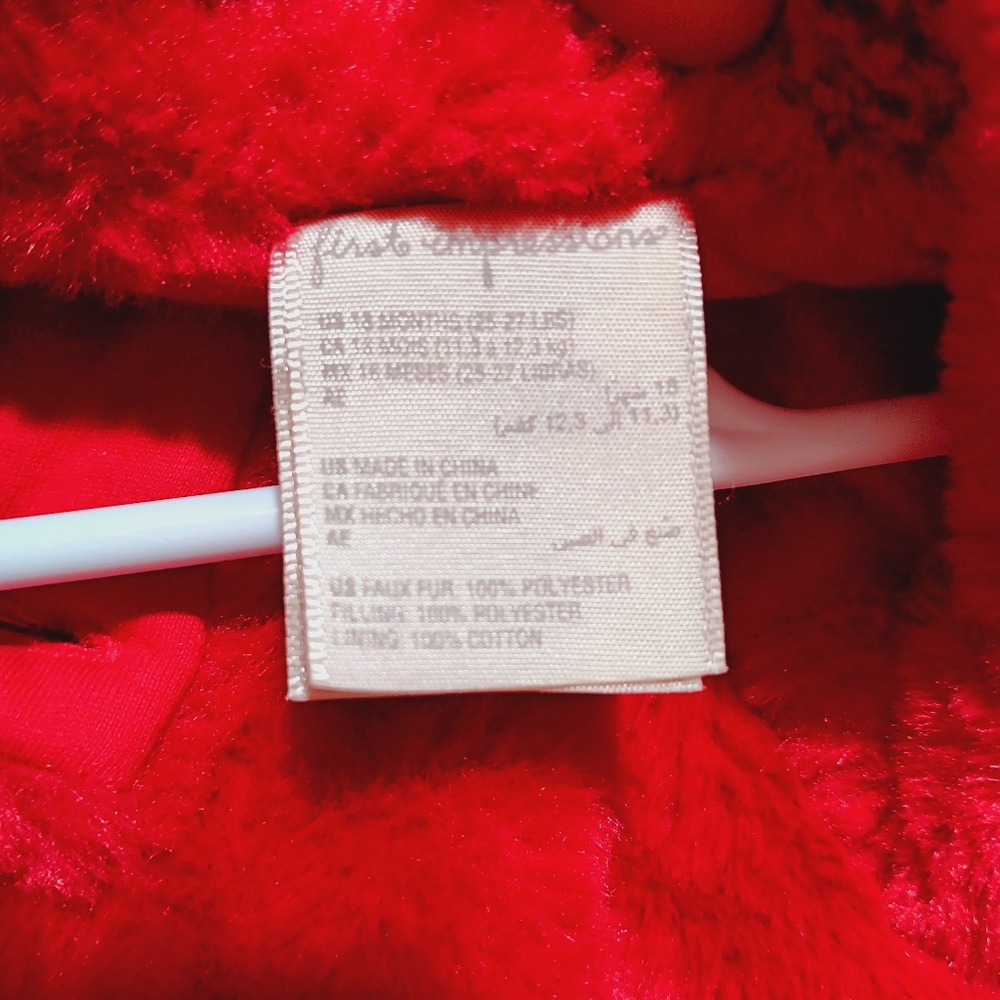 first impressions
US 18 MONTHS (25-27 LBS)
CA 18 MOIS (11,3 à 12,3 kg)
MX 18 MESES (25-27 LIBRAS)
AE 18 شهرا
(11,3 إلى 12,3 كغم)
US MADE IN CHINA
CA FABRIQUÉ EN CHINE
MX HECHO EN CHINA
AE صنع في الصين
US FAUX FUR: 100% POLYESTER
FILLING: 100% POLYESTER
LINING: 100% COTTON